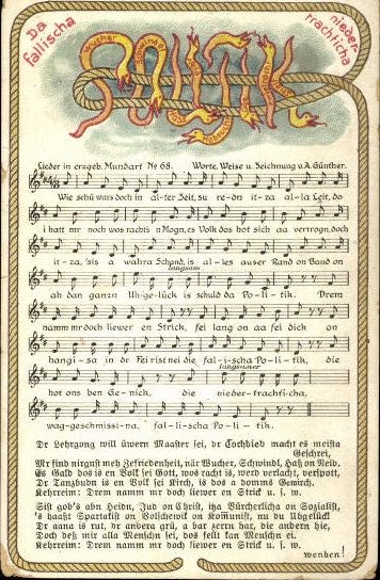 Da fallischa
nieder-trachticha
Politik
Lieder in erzgeb. Mundart № 68. Worte, Weise u. Zeichnung v. A. Günther.
Wie schü wars doch in al-ter Zeit, su re-dn it-za al-la Leit, do
i hatt mr noch wos rachts in Mogn, es Volk dos hot sich aa vertrogn, doch
it-za, 'sis a wahra Schand, is al-les auser Rand on Band on
langsam
ah dan ganzn Uh-ge-lück is schuld da Po-li-tik. Drem
namm mr doch liewer en Strick, fei lang on aa fei dick on
hangi-sa in dr Fei rist nei die fal-li-scha Po-li-tik, die
langsamer
hot ons ben Ge-nick, die nieder-trachticha,
wag-geschmissi-na, fal-li-scha Po-li-tik.
Dr Lehrgong will üwern Maaster sei, dr Tochdieb macht es meista
Geschrei,
Mr find nirgnst meh Zefriedenheit, när Wucher, Schwindl, Haß on Neid.
Es Gald dos is en Volk sei Gott, wos racht is, werd verlacht, verspott,
Dr Tanzbudn is en Volk sei Kirch, is dos a domms Gewirch.
Kehrreim: Drem namm mr doch liewer en Strick u. s. w.
Sist gob's abn Heidn, Jud on Christ, itza Bürcherlicha on Sozialist,
's haaßt Spartakist on Bolschewik on Kommunist, nu du Uhgelück
Dr aana is rut, dr andera grü, a bar zerrn har, die andern hie,
Doch deß mir alla Menschn sei, dos fellt kan Menschn ei.
Kehrreim: Drem namm mr doch liewer en Strick u. s. w.
wenden!